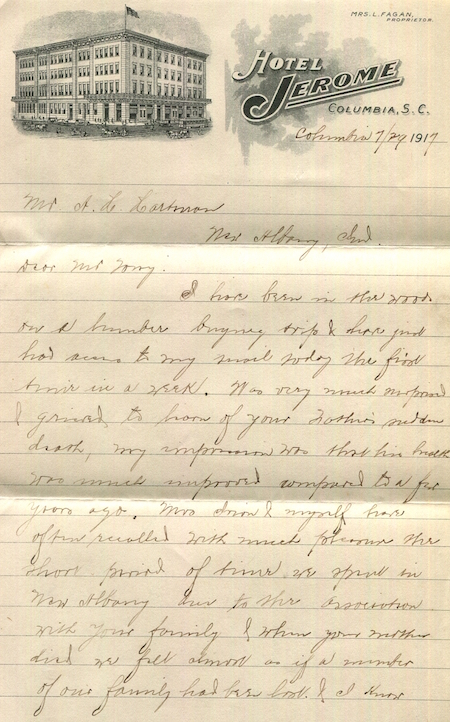 MRS. L. FAGAN,
PROPRIETOR.
HOTEL
JEROME
COLUMBIA, S.C.
Columbia 7/27 1917
Mr A. H.
New Albany, Ind.
Dear Mr
I have been in the woods
on a lumber buying trip & have just
had access to my mail today the first
time in a week. Was very much surprised
& grieved to hear of your Father's sudden
death, my impression was that his health
was much improved compared to a few
years ago. Mrs & myself have
often recalled with much pleasure the
short period of time we spent in
New Albany due to the association
with your family & when your mother
died we felt almost as if a member
of our family had been lost. & I know